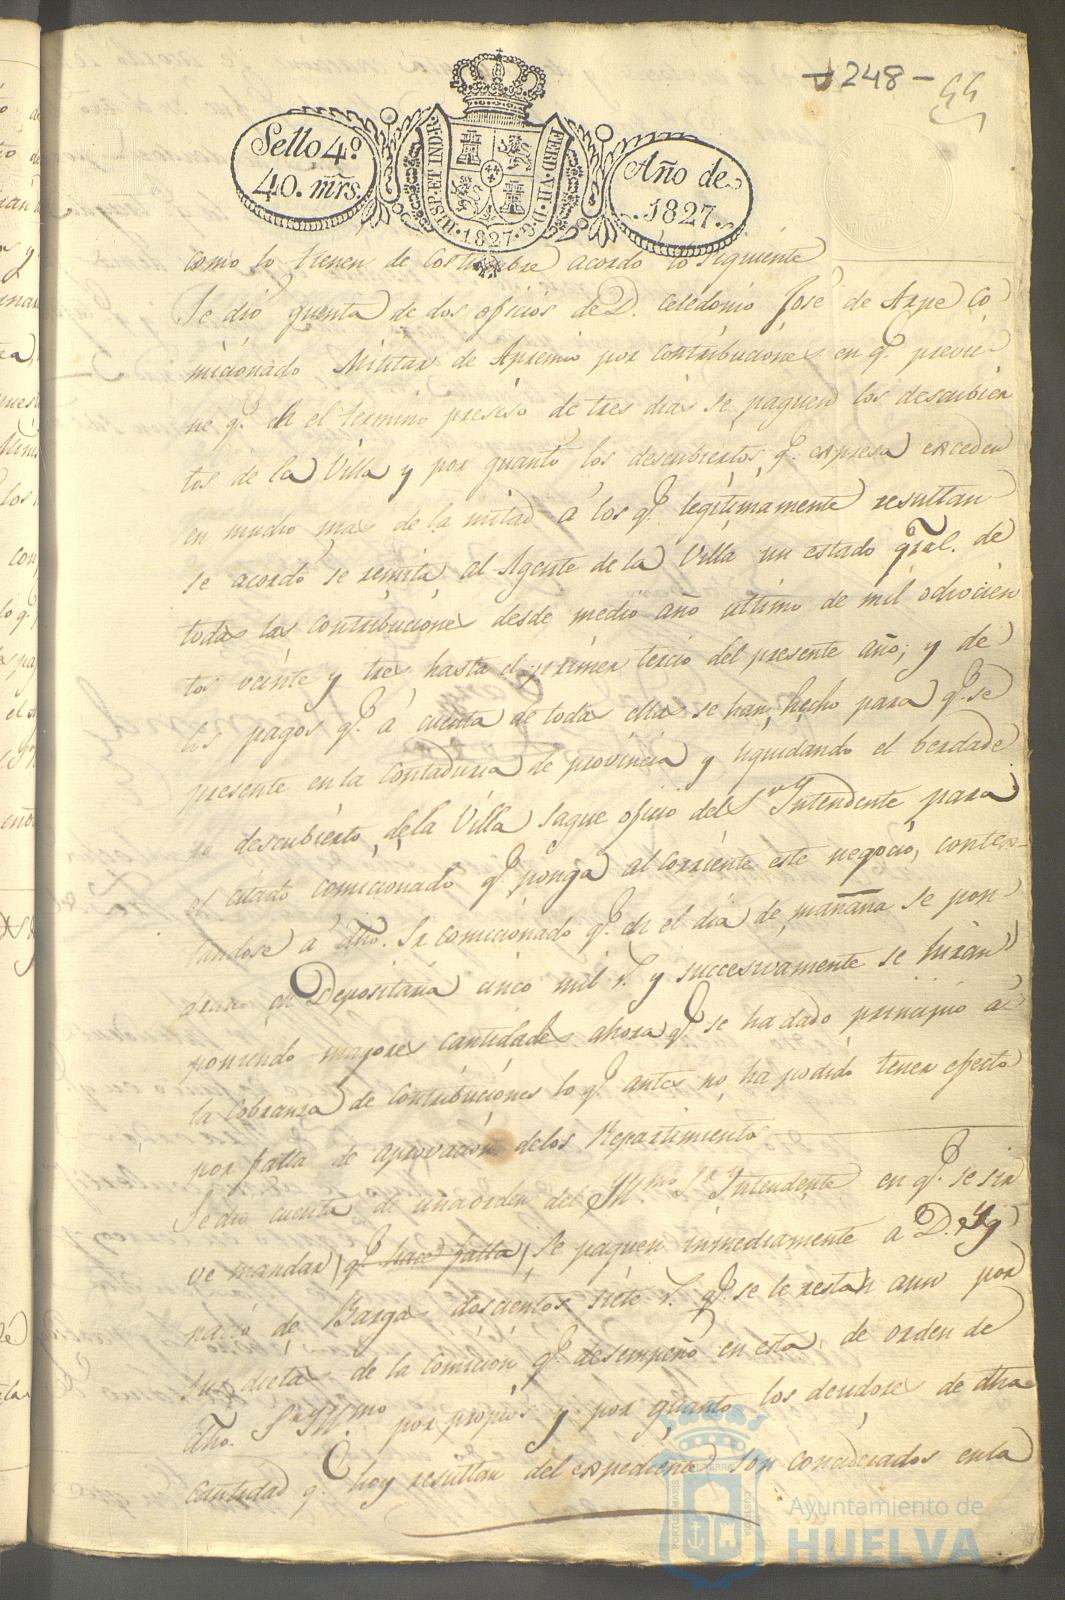 -248-
55
Sello 4º
40. mrs.
HISP. ET IND. R.
FERD. VII. D. G.
.1827.
Año de
.1827.
como lo tienen de costumbre acordo lo siguiente
Se dio quenta de dos oficios de D. Celedonio José de Arpe Co
micionado Militar de Apremio por contribuciones en q.e previe-
ne q.e en el termino preciso de tres dias se paguen los descubier
tos de la Villa y por quanto los descubiertos q.e expresa exceden
en mucho mas de la mitad á los q.e legitimamente resultan
se acordo se remita al Agente de la Villa un estado gral. de
todas las contribuciones desde medio año ultimo de mil ochocien
tos veinte y tres hasta el primer tercio del presente año; y de
los pagos q.e á cuenta de todas ellas se han hecho para q.e se
presente en la Contaduria de provincia y liquidando el berdade
ro descubierto de la Villa saque oficio del Sr Intendente para
el citado comicionado q.e ponga al corriente este negocio, contes-
tandose á dho. Sr comicionado q.e en el dia de mañana se pon-
dran en Depositaria cinco mil r. y succesivamente se hiran
poniendo mayores cantidades ahora q.e se ha dado principio á
la cobranza de contribuciones lo q.e antes no ha podido tener efecto
por falta de aprovacion de los Repartimientos
Se dio cuenta de una orden del Yll.mo Sr Intendente en q.e se sir
ve mandar (q.e hace falta) se paguen inmediamente a D. Yg
nacio de Barga doscientos siete r. q.e se le restan aun por
sus dietas de la comicion q.e desempeñó en esta de orden de
dho. Sr Yll.mo por propios y por quanto los deudores de dha
cantidad q.e hoy resultan del expediente son conciderados en la
PORTUS MARIS
TERRE
CUSTODIA
Ayuntamiento de
HUELVA